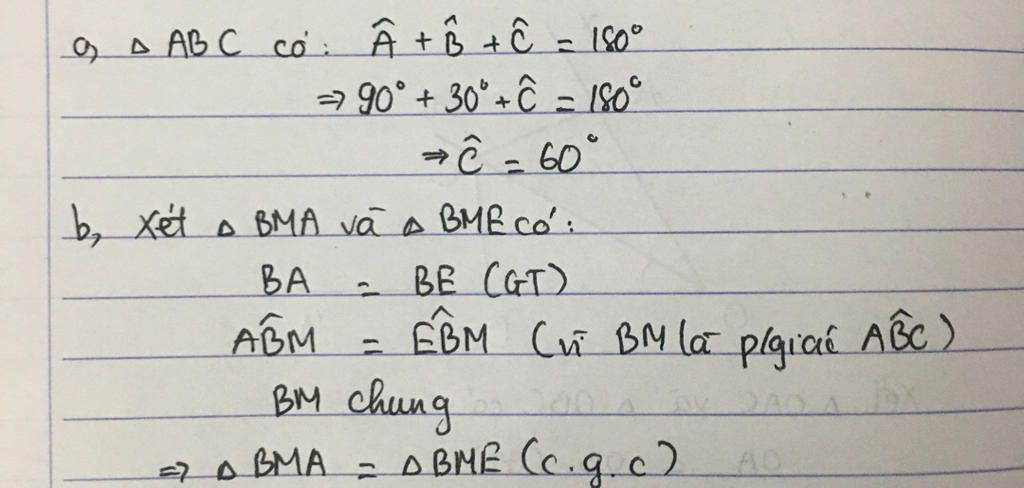 a, △ ABC có: Â + B̂ + Ĉ = 180°
⇒ 90° + 30° + Ĉ = 180°
⇒ Ĉ = 60°
b, Xét △ BMA và △ BME có:
BA = BE (GT)
AB̂M = EB̂M (vì BM là p/giác AB̂C)
BM chung
⇒ △ BMA = △ BME (c.g.c)